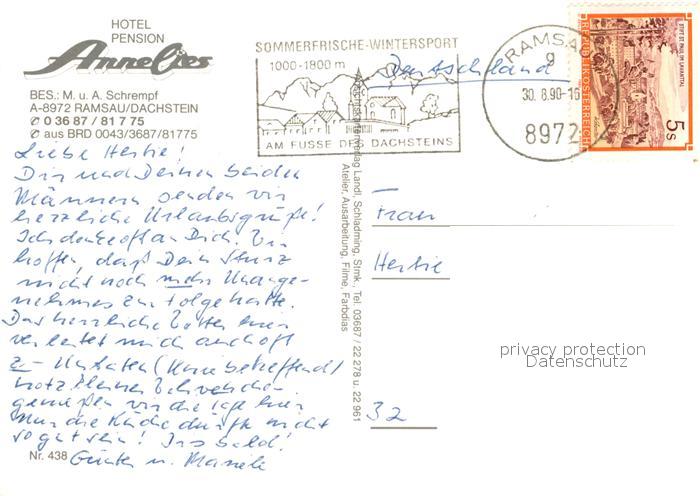 HOTEL
PENSION
AnneLies
BES.: M. u. A. Schrempf
A-8972 RAMSAU/DACHSTEIN
✆ 0 36 87 / 81 7 75
✆ aus BRD 0043/3687/81775
SOMMERFRISCHE-WINTERSPORT
1000-1800 m
AM FUSSE DES DACHSTEINS
RAMSAU
9
30. 8.90-16
8972
REPUBLIK ÖSTERREICH
STIFT ST. PAUL IM LAVANTTAL
5 S
Deutschland
Liebe Hertie!
Dir und Deinen beiden
Männern senden wir
herzliche Urlaubsgrüße!
Ich denke oft an Dich. Wir
hoffen, daß Dein Sturz
nicht noch mehr Unange-
nehmes zur Folge hatte.
Das herrliche Wetter hier
verleitet mich auch oft
zu Untaten (Knie betreffend)
trotz kleiner
genießen wir die Tage hier
Nur die Küche dürfte nicht
so gut sein! Bis bald!
Nr. 438
Günter u.
Postkartenverlag Landl, Schladming, Stmk., Tel. 03687 / 22 278 u. 22 961
Atelier, Ausarbeitung, Filme, Farbdias
Frau
Hertie
32
privacy protection
Datenschutz